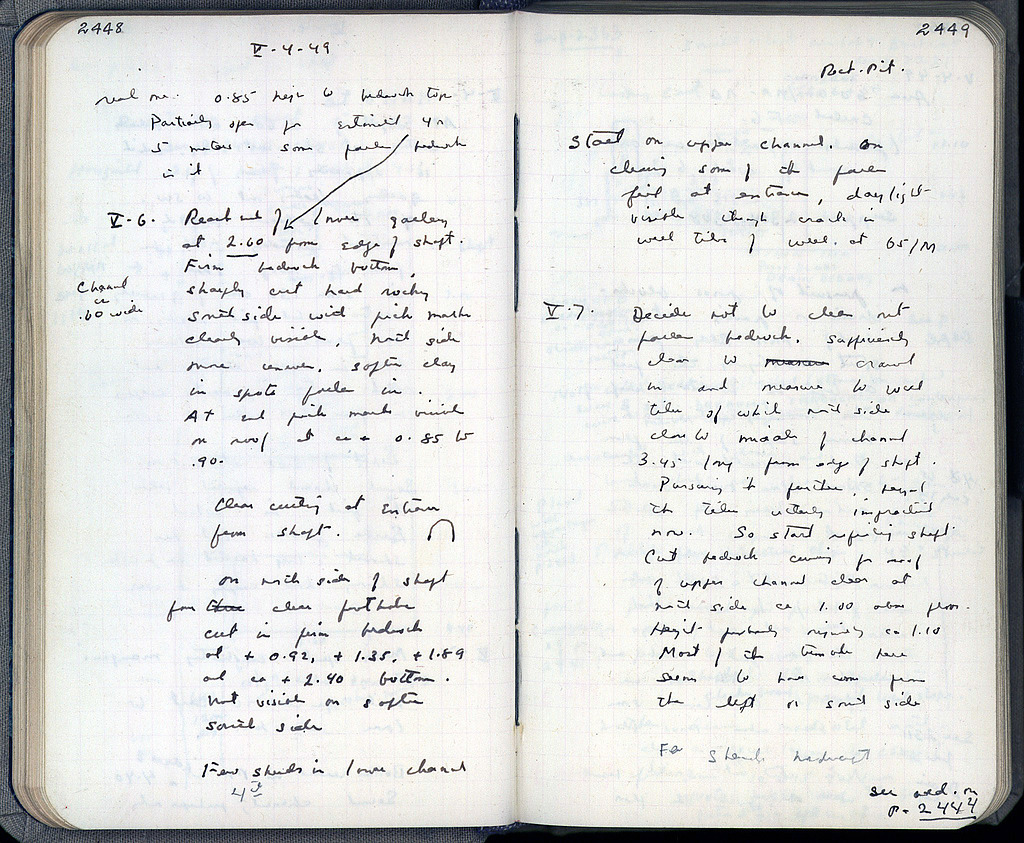 2448
V-4-49
real one. 0.85 high to bedrock top
Partially open for estimated 4 m
5 meters some fallen bedrock
in it
V-6. Reach end of lower gallery
at 2.60 from edge of shaft.
Firm bedrock bottom,
Channel
ca
.60 wide
sharply cut hard rocky
south side with pick marks
clearly visible, north side
more uneven, softer clay
in spots fallen in.
At end pick marks visible
on roof at ca + 0.85 to
.90.
Clear cutting at entrance
from shaft.
on north side of shaft
four clear footholes
cut in firm bedrock
at + 0.92, + 1.35, + 1.89
at ca + 2.40 bottom.
Not visible on softer
south side
Few sherds in lower channel
2449
Start on upper channel. On
clearing some of the fallen
fill at entrance, daylight
visible through crack in
well tiles of well. at 65/M
V-7. Decide not to clean out
fallen bedrock. Sufficiently
clear to measure crawl
in and measure to well
tiles of which north side
close to middle of channel
3.45 long from edge of shaft.
Pursuing it further, beyond
the tiles utterly impractical
now. So start refilling shaft
Cut bedrock curving for roof
of upper channel clear at
north side ca 1.00 above floor.
Height probably originally ca 1.10
Most of the tumble here
seems to have come from
the left or south side
Few sherds
see add. on
p. 2444